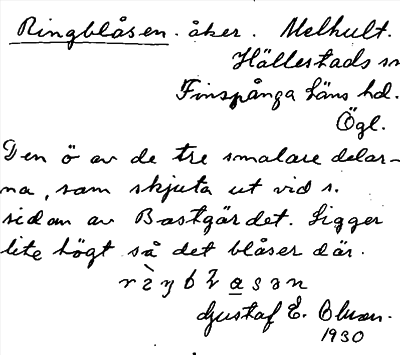 Ringblåsen. åker. Melhult.
Hällestads sn
Finspånga läns hd.
Ögl.
Den ö av de tre smalare delar-
na, som skjuta ut vid s.
sidan av Bastgärdet. Ligger
lite högt så det blåser där.
Gustaf E.
1930